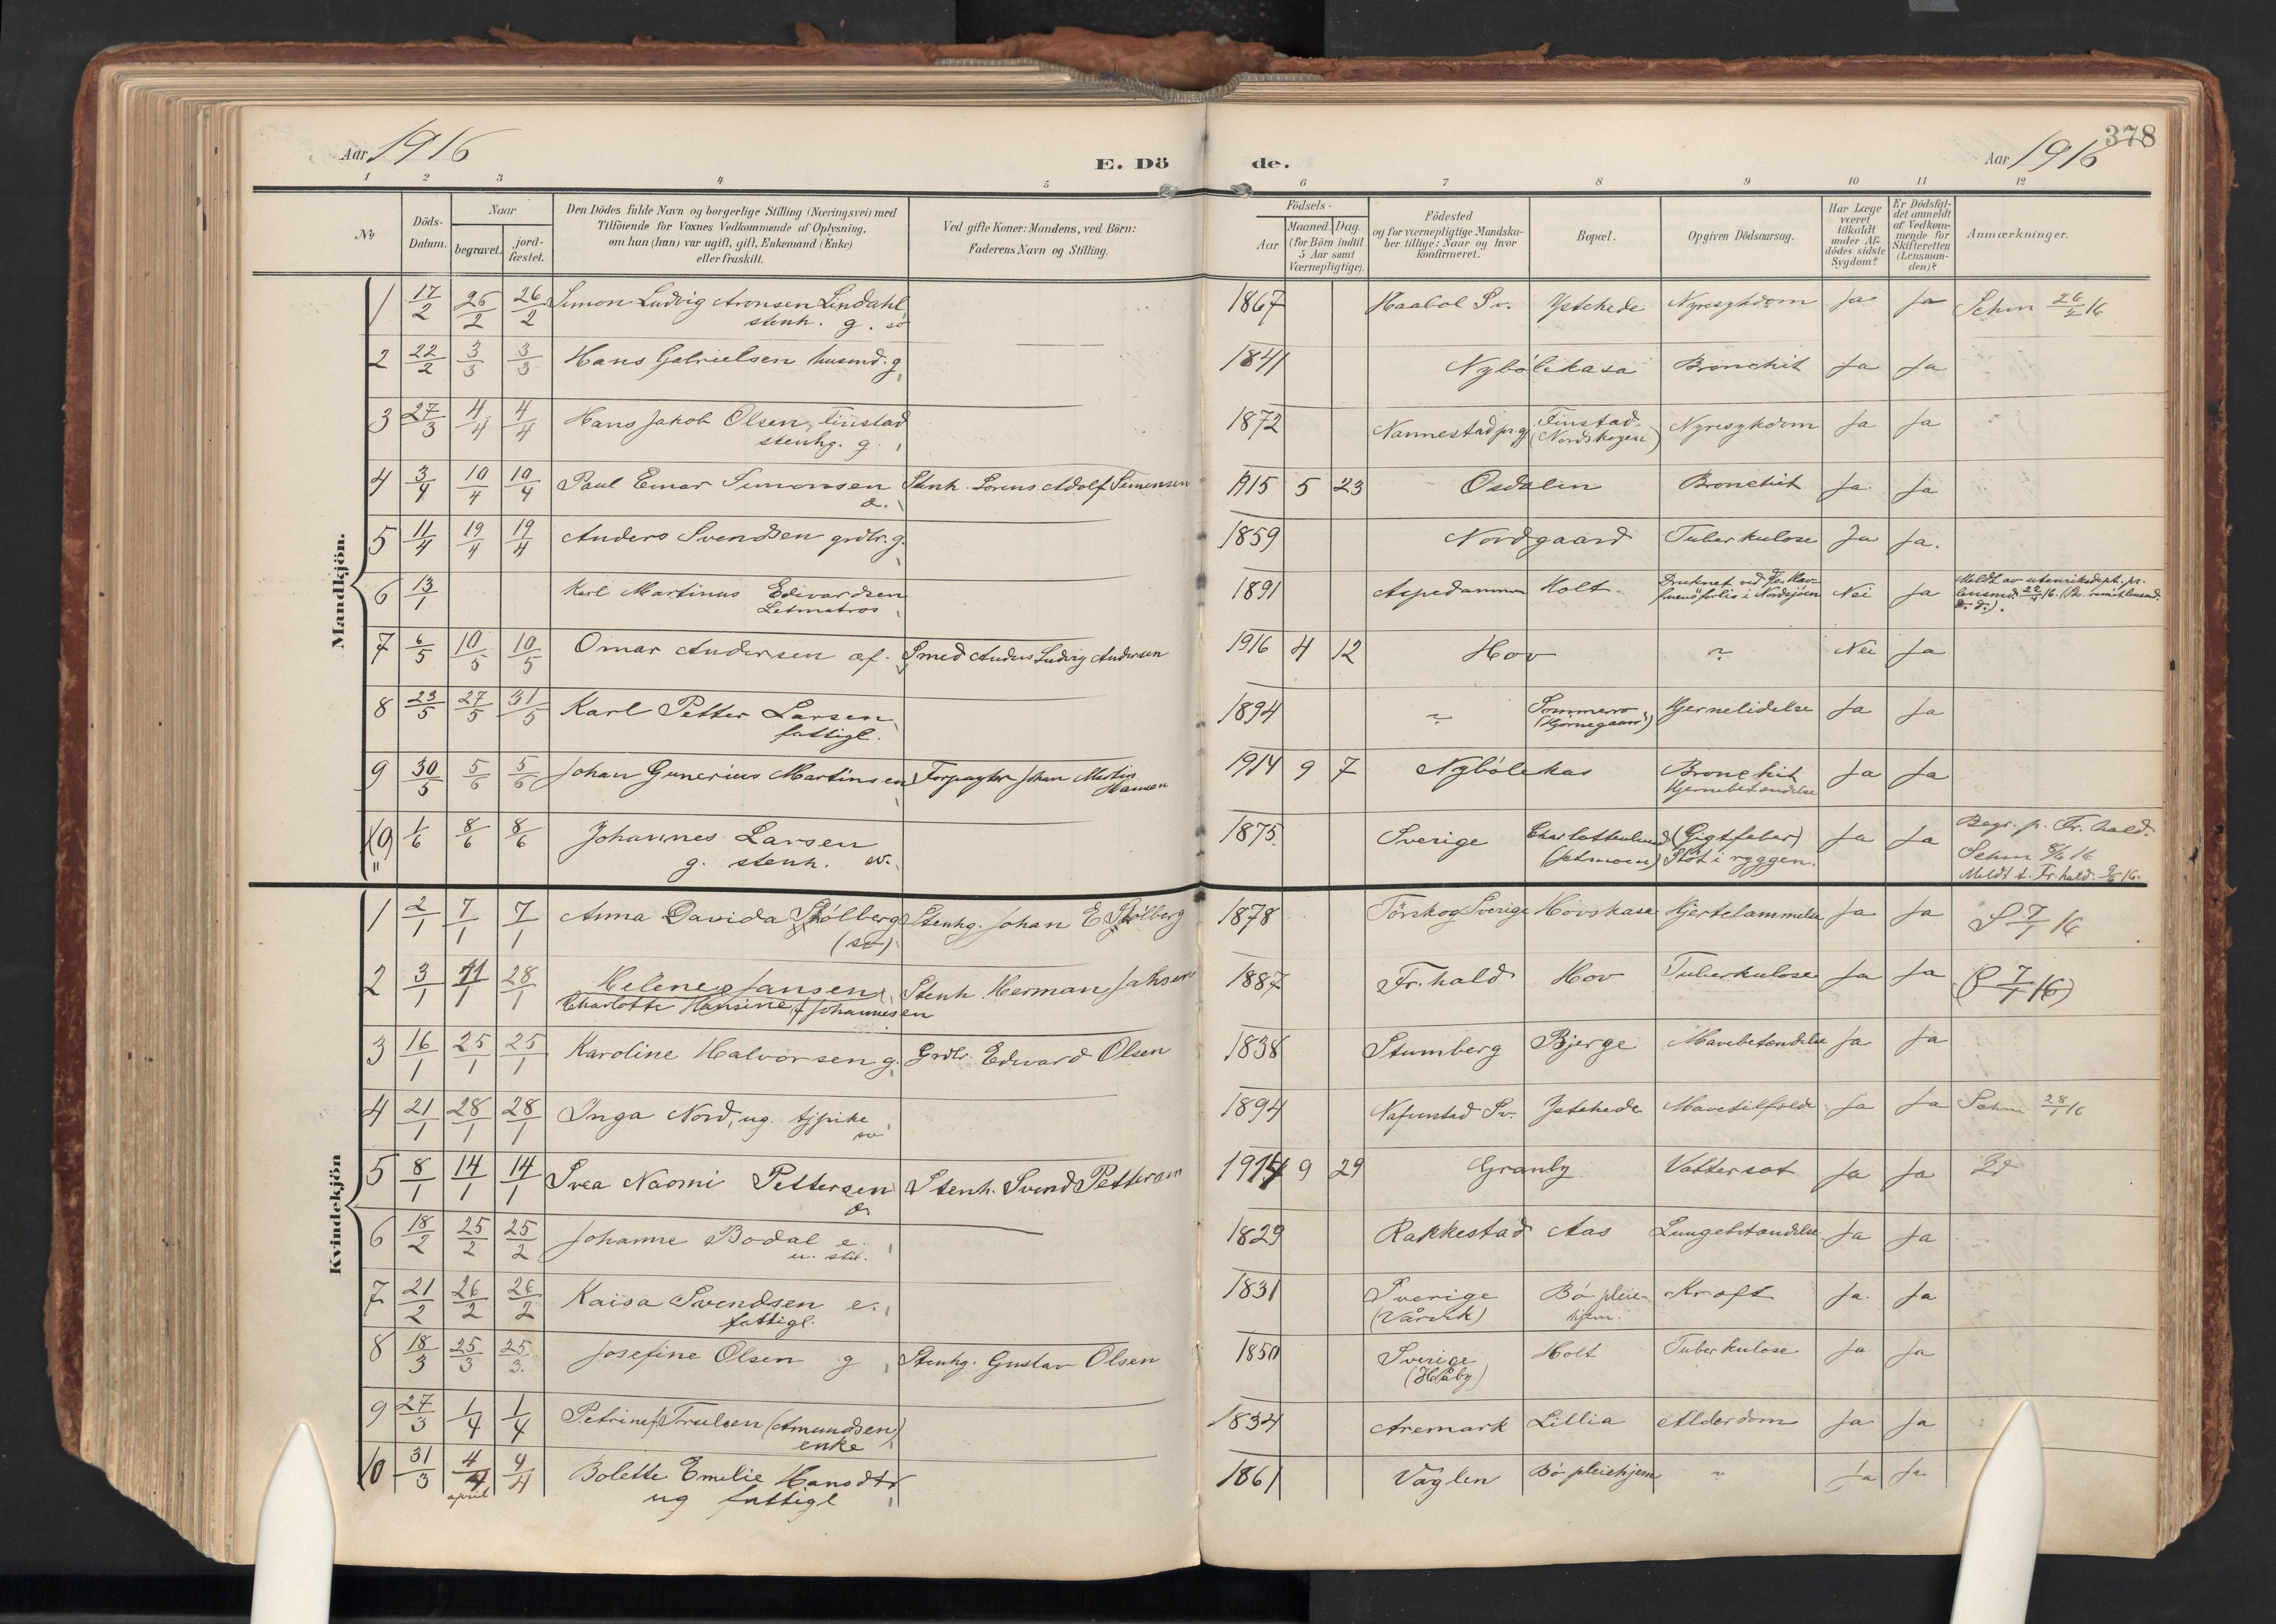 378
Aar 1916 E. Dö de. Aar 1916
1 2 3 4 5 6 7 8 9 10 11 12
No
Döds-Datum.
Naar
begravet. jord-fæstet.
Den Dödes fulde Navn og borgerlige Stilling (Næringsvei) med
Tilföiende for Voxnes Vedkommende af Oplysning,
om han (hun) var ugift, gift, Enkemand (Enke)
eller fraskilt.
Ved gifte Koner: Mandens, ved Börn:
Faderens Navn og Stilling.
Födsels-
Aar Maaned. Dag.
(for Börn indtil
5 Aar samt
Værnepligtige).
Födested
og for værnepligtige Mandska-
ber tillige: Naar og hvor
konfirmeret.
Bopæl.
Opgiven Dödsaarsag.
Har Læge
været
tilkaldt
under Af-
dödes sidste
Sygdom?
Er Dödsfal-
det anmeldt
af Vedkom-
mende for
Skifteretten
(Lensman-
den)?
Anmærkninger.
Mandkjön.
1 17/2 26/2 26/2 Simon Ludvig Aronsen Lindahl 1867 Haabol Sv. Ystehede Nyresykdom Ja Ja Sehm 26/2 16
stenh. g. sv
2 22/2 3/3 3/3 Hans Gabrielsen husmd. g. 1841 Nybölekasa Bronchit Ja Ja
3 27/3 4/4 4/4 Hans Jakob Olsen, Finstad 1872 Nannestad prgj Finstad (Nordskogen) Nyresykdom Ja Ja
stenhg. g.
4 3/4 10/4 10/4 Paul Einar Simonsen Stenh. Lorens Adolf Simensen 1915 5 23 Osdalen Bronchit Ja Ja
d.
5 11/4 19/4 19/4 Anders Svendsen grdbr. g. 1859 Nordgaard Tuberkulose Ja Ja.
6 13/1 Karl Martinus Edevardsen 1891 Aspedammen Holt. Druknet ved forlis i Nordsjöen Nei Ja Meldt av utenriksdept. pr.
Letmatros
7 6/5 10/5 10/5 Omar Andersen af. Smed Anders Ludvig Andersen 1916 4 12 Hov ~ Nei Ja
8 23/5 27/5 31/5 Karl Petter Larsen 1894 ~ Sommerro (Hjörnegaard) Hjernelidelse Ja Ja
fattigl.
9 30/5 5/6 5/6 Johan Gunerius Martinsen Forpagter Johan Martin Hansen 1914 9 7 Nybölekas Bronchit Hjernebetændelse Ja Ja
(9) 1/6 8/6 8/6 Johannes Larsen 1875 Sverige Charlottenlund (Gigtfeber) Stöt i ryggen. Ja Ja Begr. p. Fr.hald.
g. stenh. sv. Sehm 8/6 16
Meldt t. Fr.hald.
Kvindekjön
1 2/1 7/1 7/1 Anna Davida Stólberg Stenhg. Johan E Stólberg 1878 Törskog Sverige Hovskasa Hjertelammelse Ja Ja S 7/1 16
(sv)
2 3/1 11/1 28/1 Helene Jansen Stenh. Herman Johsen 1887 Fr.hald Hov Tuberkulose Ja Ja (S 7/1 16)
Charlotte Hansine f Johannesen
3 16/1 25/1 25/1 Karoline Halvorsen g. Grdbr. Edvard Olsen 1838 Stumberg Bjerge Mavebetændelse Ja Ja
4 21/1 28/1 28/1 Inga Nord, ug. tjpike 1894 Nafverstad Sv. Ystehede Mavetilfælde Ja Ja Sehm 28/1 16
sv
5 8/1 14/1 14/1 Svea Naomi Pettersen Stenh. Svend Petterson 1914 9 29 Granby Vattersot Ja Ja
d.
6 18/2 25/2 25/2 Johanne Bodal e. 1829 Rakkestad Aas Lungebetændelse Ja Ja
u. stil.
7 21/2 26/2 26/2 Kaisa Svendsen e. 1831 Sverige Bö pleie- Kræft Ja. Ja
fattigl. (Vårvik) hjem.
8 18/3 25/3 25/3. Josefine Olsen g Stenhg. Gustav Olsen 1850 Sverige Holt Tuberkulose Ja Ja
(Håby)
9 27/3 1/4 1/4 Petrine f. Trulsen (Amundsen) 1834 Aremark Lillia Alderdom Ja Ja
enke
10 31/3 4/4 4/4 Bolette Emilie Hansdtr 1861 Våglen Bö pleiehjem ~ Ja Ja
april ug fattigl